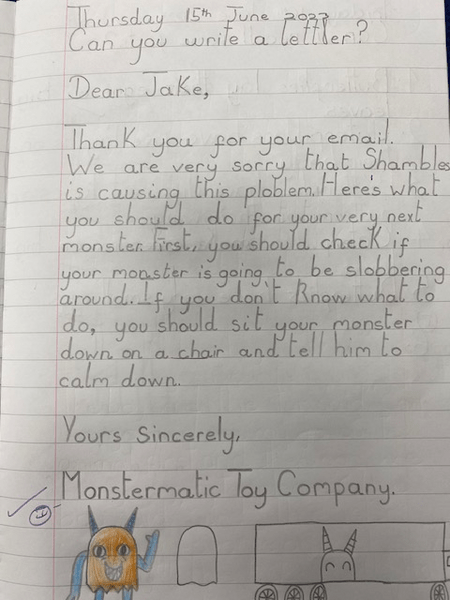 Thursday 15th June 2023
Can you write a lettler?
Dear Jake,
Thank you for your email.
We are very sorry that Shambles
is causing this ploblem. Here's what
you should do for your very next
monster. First, you should check if
your monster is going to be slobbering
around. If you don't know what to
do, you should sit your monster
down on a chair and tell him to
calm down.
Yours Sincerely,
Monstermatic Toy Company.